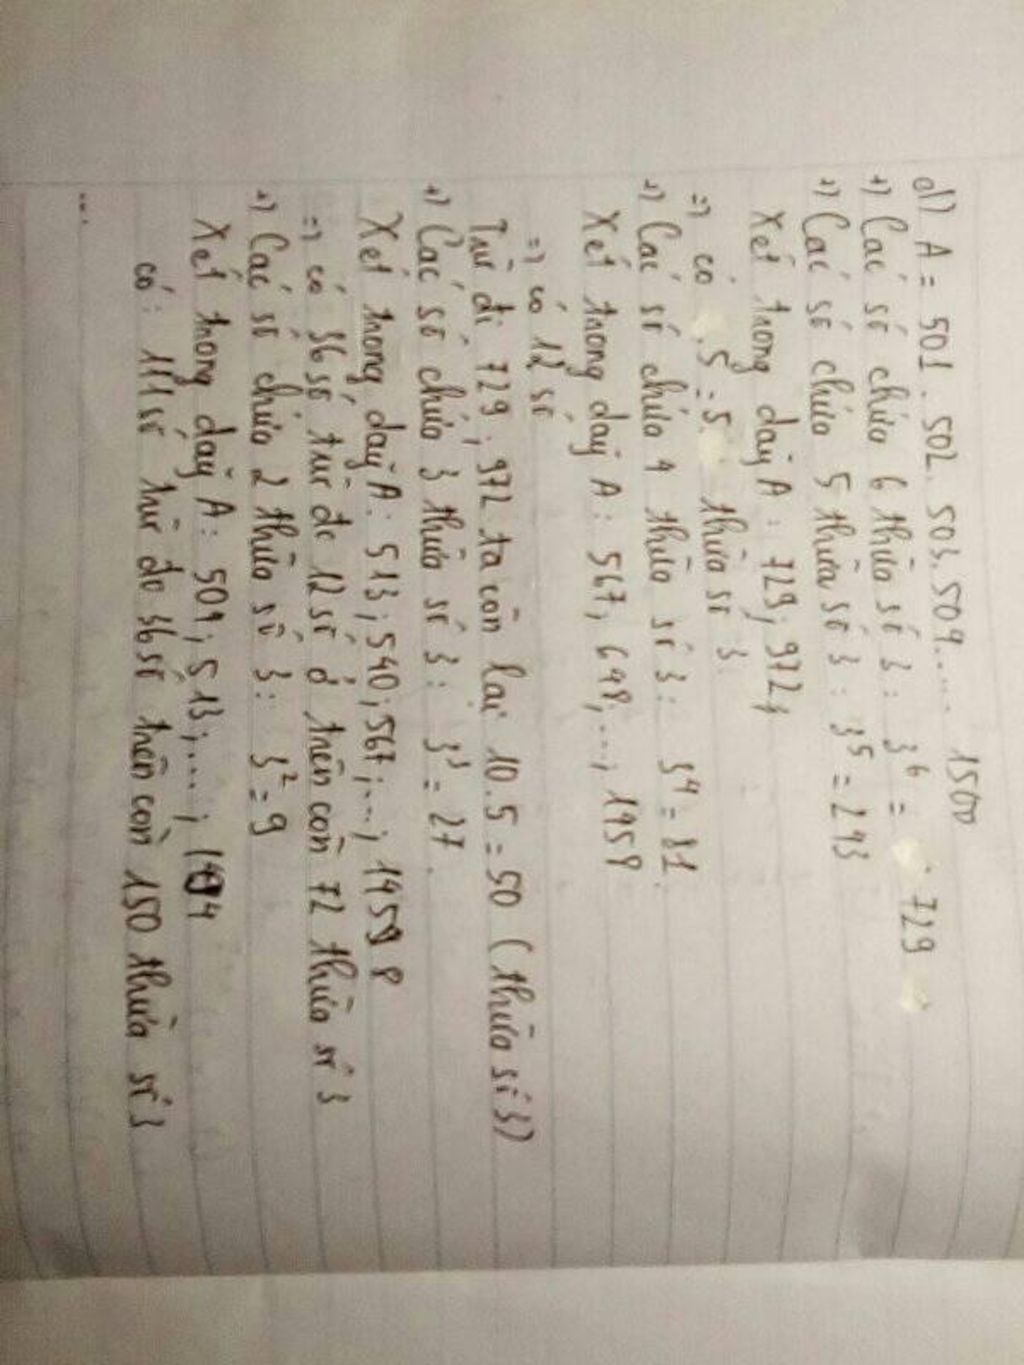 d) A = 501. 502. 503. 504..... 1500
+) Các số chứa 6 thừa số 3: 3⁶ = 729
+) Các số chứa 5 thừa số 3: 3⁵ = 243
Xét trong dãy A: 729; 972;
=) có .5 = 5 thừa số 3
+) Các số chứa 4 thừa số 3: 3⁴ = 81.
Xét trong dãy A: 567; 648;...; 1458
=) có 12 số
Trừ đi 729; 972 ta còn lại 10.5 = 50 (thừa số 3)
+) Các số chứa 3 thừa số 3: 3³ = 27.
Xét trong dãy A: 513; 540; 567;...; 1458
=) có 36 số, trừ đc 12 số ở trên còn 72 thừa số 3
+) Các số chứa 2 thừa số 3: 3² = 9
Xét trong dãy A: 504; 513;....;
có: 111 số trừ đc 36 số trên còn 150 thừa số 3
...